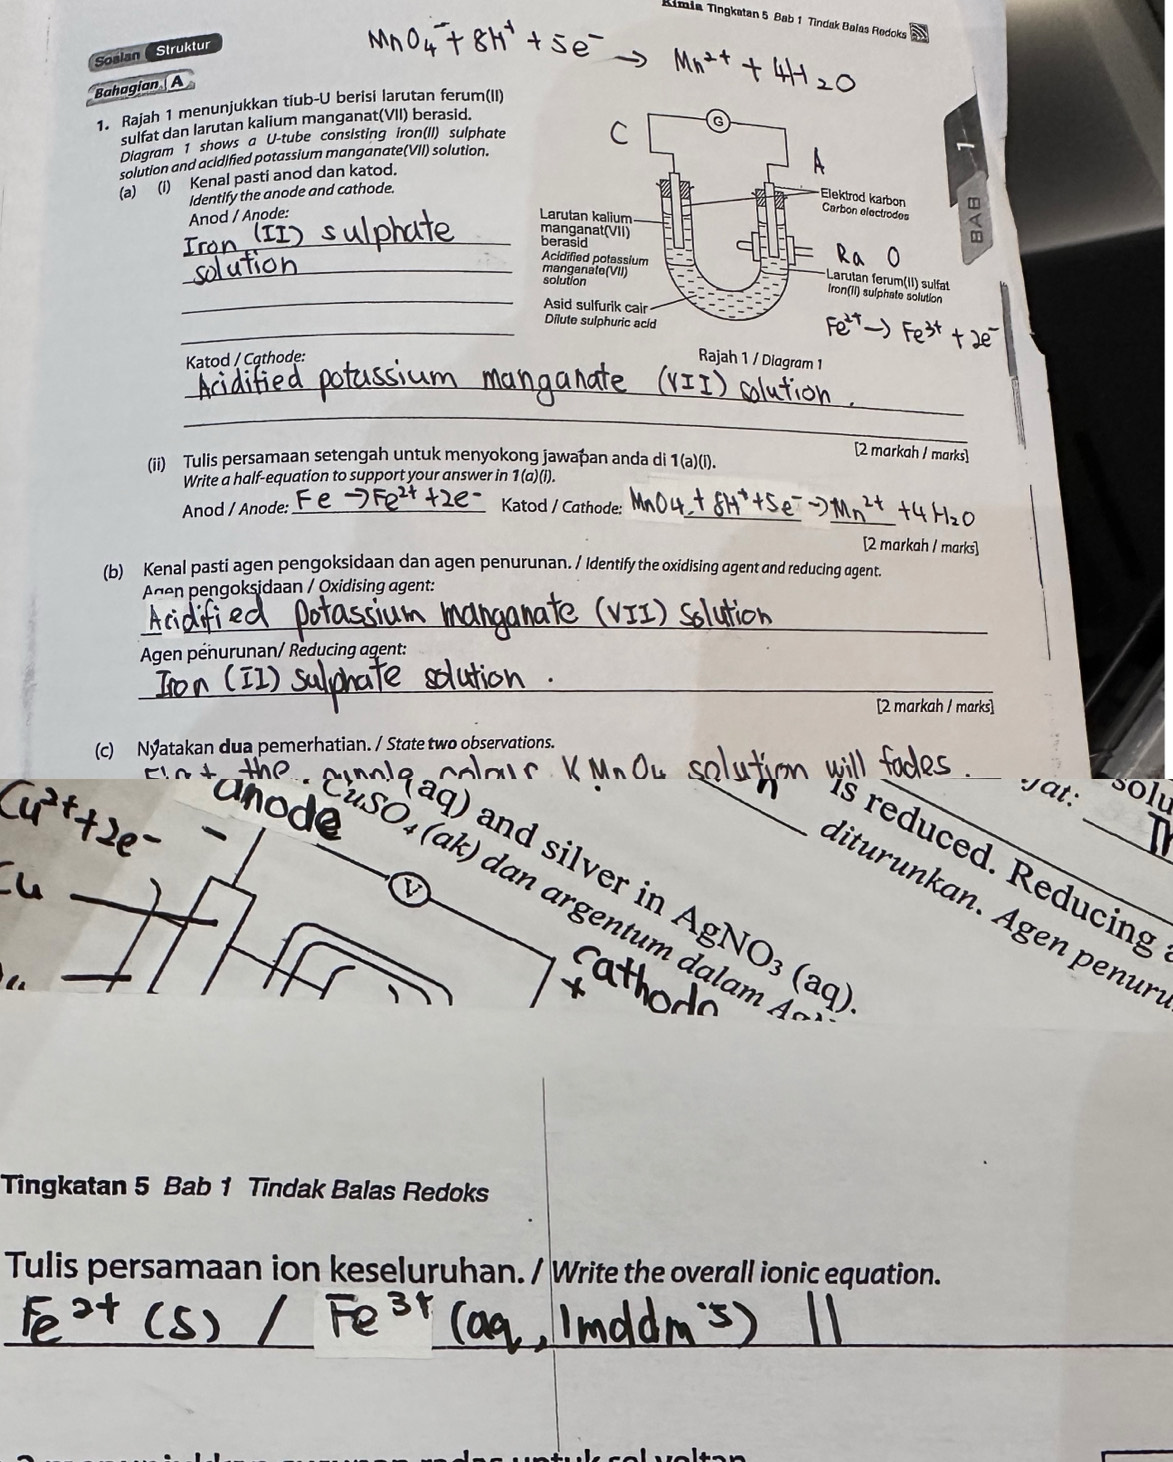 Kimia Tingkatan 5 Bab 1 Tindak Balas Redoks
MnO₄⁻ + 8H⁺ + 5e⁻ → Mn²⁺ + 4H₂O
Soalan Struktur
Bahagian A
1. Rajah 1 menunjukkan tiub-U berisi larutan ferum(II)
sulfat dan larutan kalium manganat(VII) berasid.
Diagram 1 shows a U-tube consisting iron(II) sulphate
solution and acidified potassium manganate(VII) solution.
(a) (i) Kenal pasti anod dan katod.
Identify the anode and cathode.
Anod / Anode:
Iron (II) sulphate
solution
C
G
A
Elektrod karbon
Carbon electrodes
Larutan kalium
manganat(VII)
berasid
Acidified potassium
manganate(VII)
solution
Ra O
Larutan ferum(II) sulfat
Iron(II) sulphate solution
Asid sulfurik cair
Dilute sulphuric acid
Fe²⁺ → Fe³⁺ + 2e⁻
Rajah 1 / Diagram 1
1
BAB
Katod / Cathode:
Acidified potussium manganate (VII) solution.
[2 markah / marks]
(ii) Tulis persamaan setengah untuk menyokong jawapan anda di 1(a)(i).
Write a half-equation to support your answer in 1(a)(i).
Anod / Anode: Fe → Fe²⁺ + 2e⁻ Katod / Cathode: MnO4 + 8H⁺ + 5e⁻ → Mn²⁺ + 4H₂O
[2 markah / marks]
(b) Kenal pasti agen pengoksidaan dan agen penurunan. / Identify the oxidising agent and reducing agent.
Agen pengoksidaan / Oxidising agent:
Acidified potassium manganate (VII) solution
Agen penurunan/ Reducing agent:
Iron (II) sulphate solution .
[2 markah / marks]
(c) Nyatakan dua pemerhatian. / State two observations.
the purple colour KMnO4 solution will fades.
Cu²⁺ + 2e⁻
Cu
anode
−
V
cathode
+
(aq) and silver in AgNO₃ (aq).
CuSO₄ (ak) dan argentum dalam
is reduced. Reducing
diturunkan. Agen
Tingkatan 5 Bab 1 Tindak Balas Redoks
Tulis persamaan ion keseluruhan. / Write the overall ionic equation.
Fe²⁺ (s) / Fe³⁺ (aq, 1moldm⁻³) ||